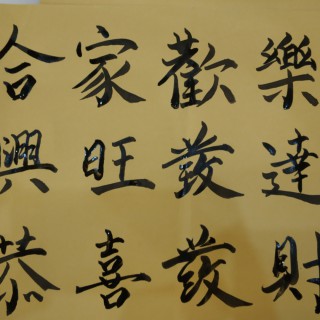 合家歡樂
興旺發達
恭喜發財